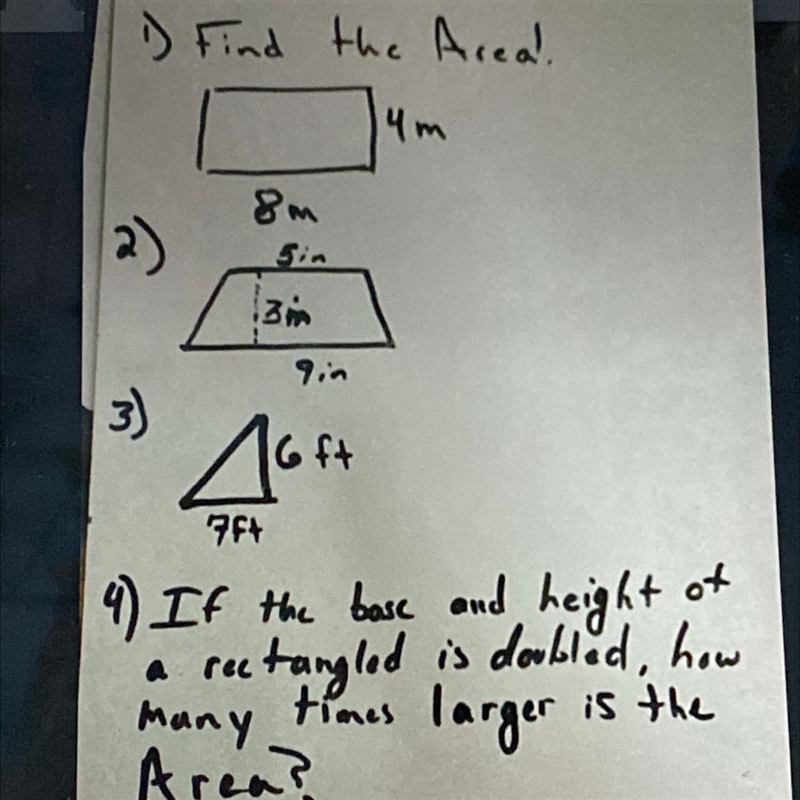 1) Find the Area!
4m
8m
2)
5in
3in
9in
3)
6 ft
7ft
4) If the base and height of
a rectangled is doubled, how
many times larger is the
Area?